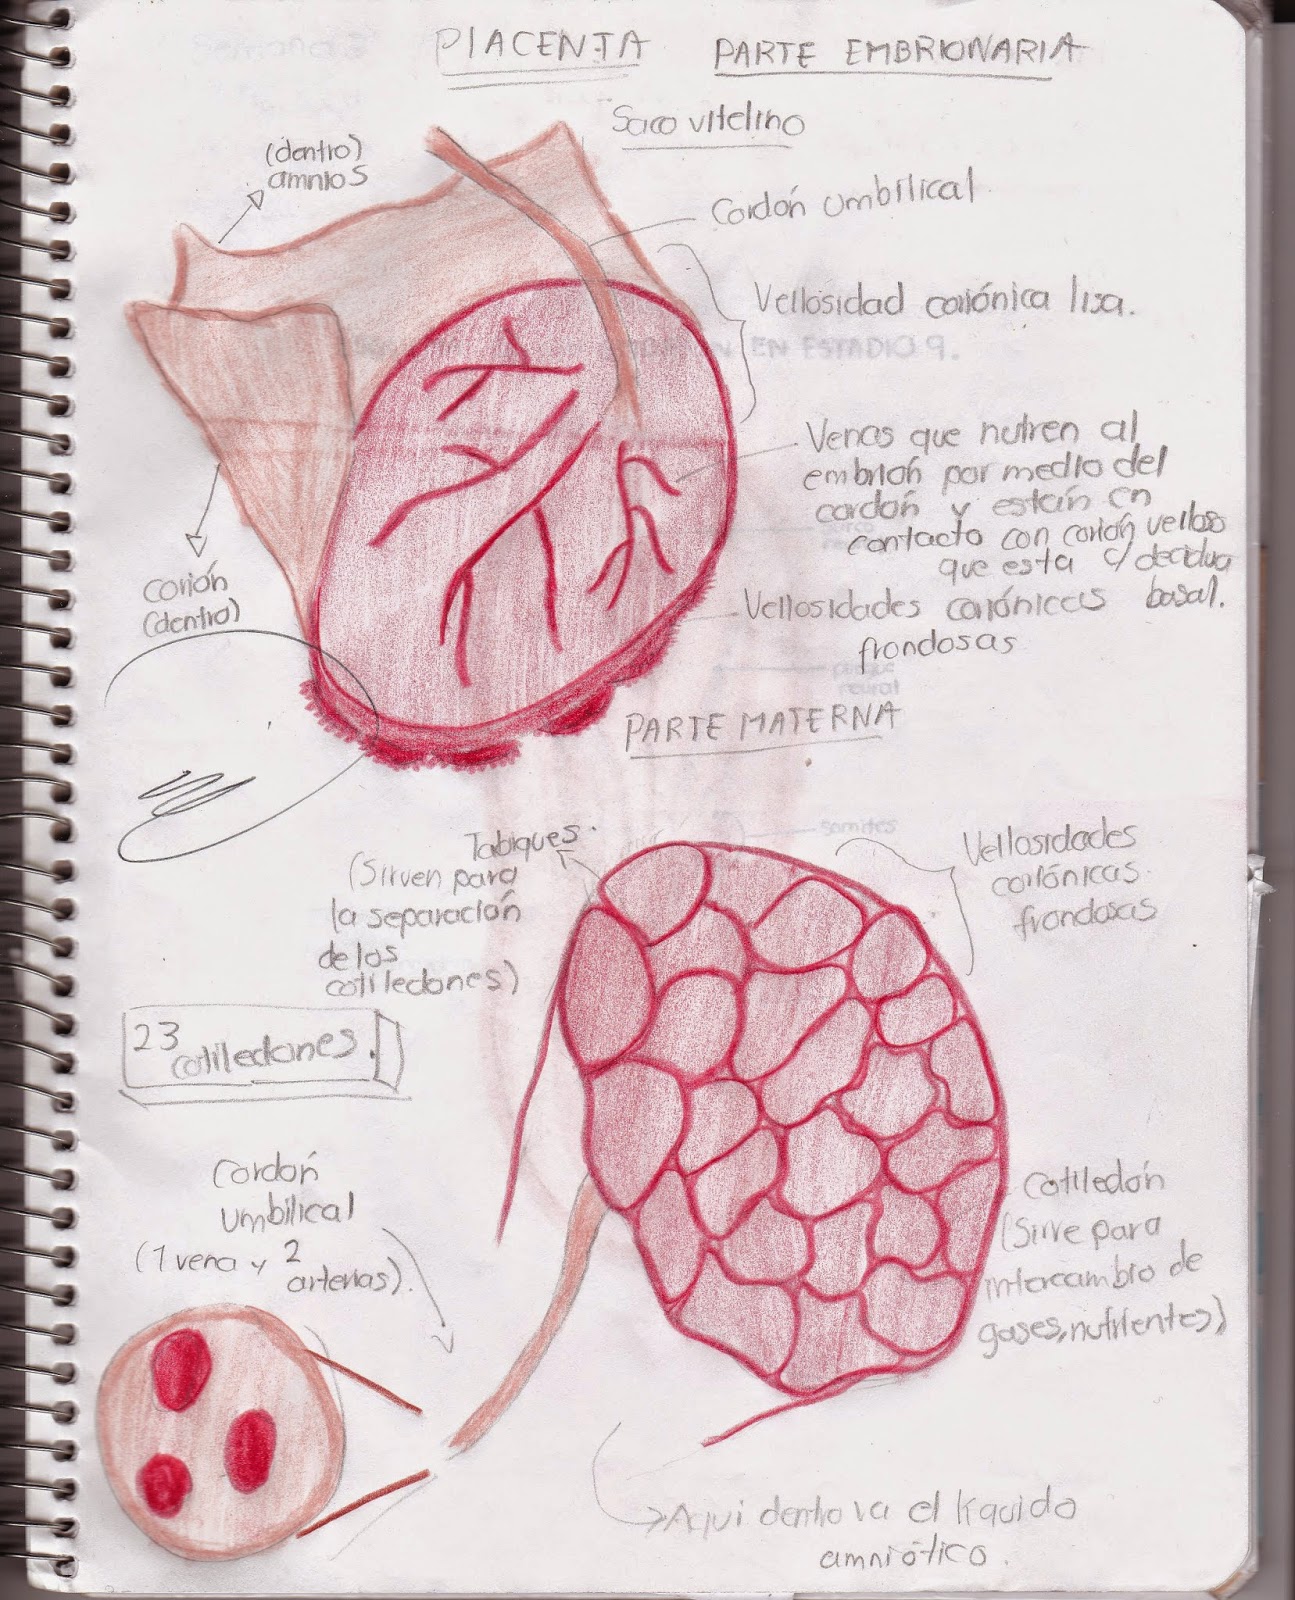 PLACENTA PARTE EMBRIONARIA
Saco vitelino
(dentro)
amnios
Cordón umbilical
Vellosidad coriónica lisa.
EN ESTADIO 9.
Venas que nutren al
embrión por medio del
cordón y están en
contacto con corión velloso
que esta c/ decidua
basal.
Vellosidades coriónicas
frondosas
corión
(dentro)
PARTE MATERNA
somites
Tabiques.
(Sirven para
la separación
de los
cotiledones)
Vellosidades
coriónicas.
frondosas
23
cotiledones.
Cordón
umbilical
(1 vena y 2
arterias).
cotiledón
(Sirve para
intercambio de
gases, nutrientes)
Aqui dentro va el líquido
amniótico.